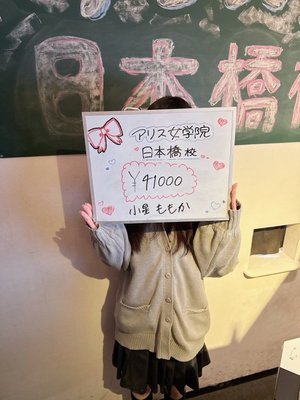 日本橋
アリス女学院
日本橋校
¥41000
小星 ももか